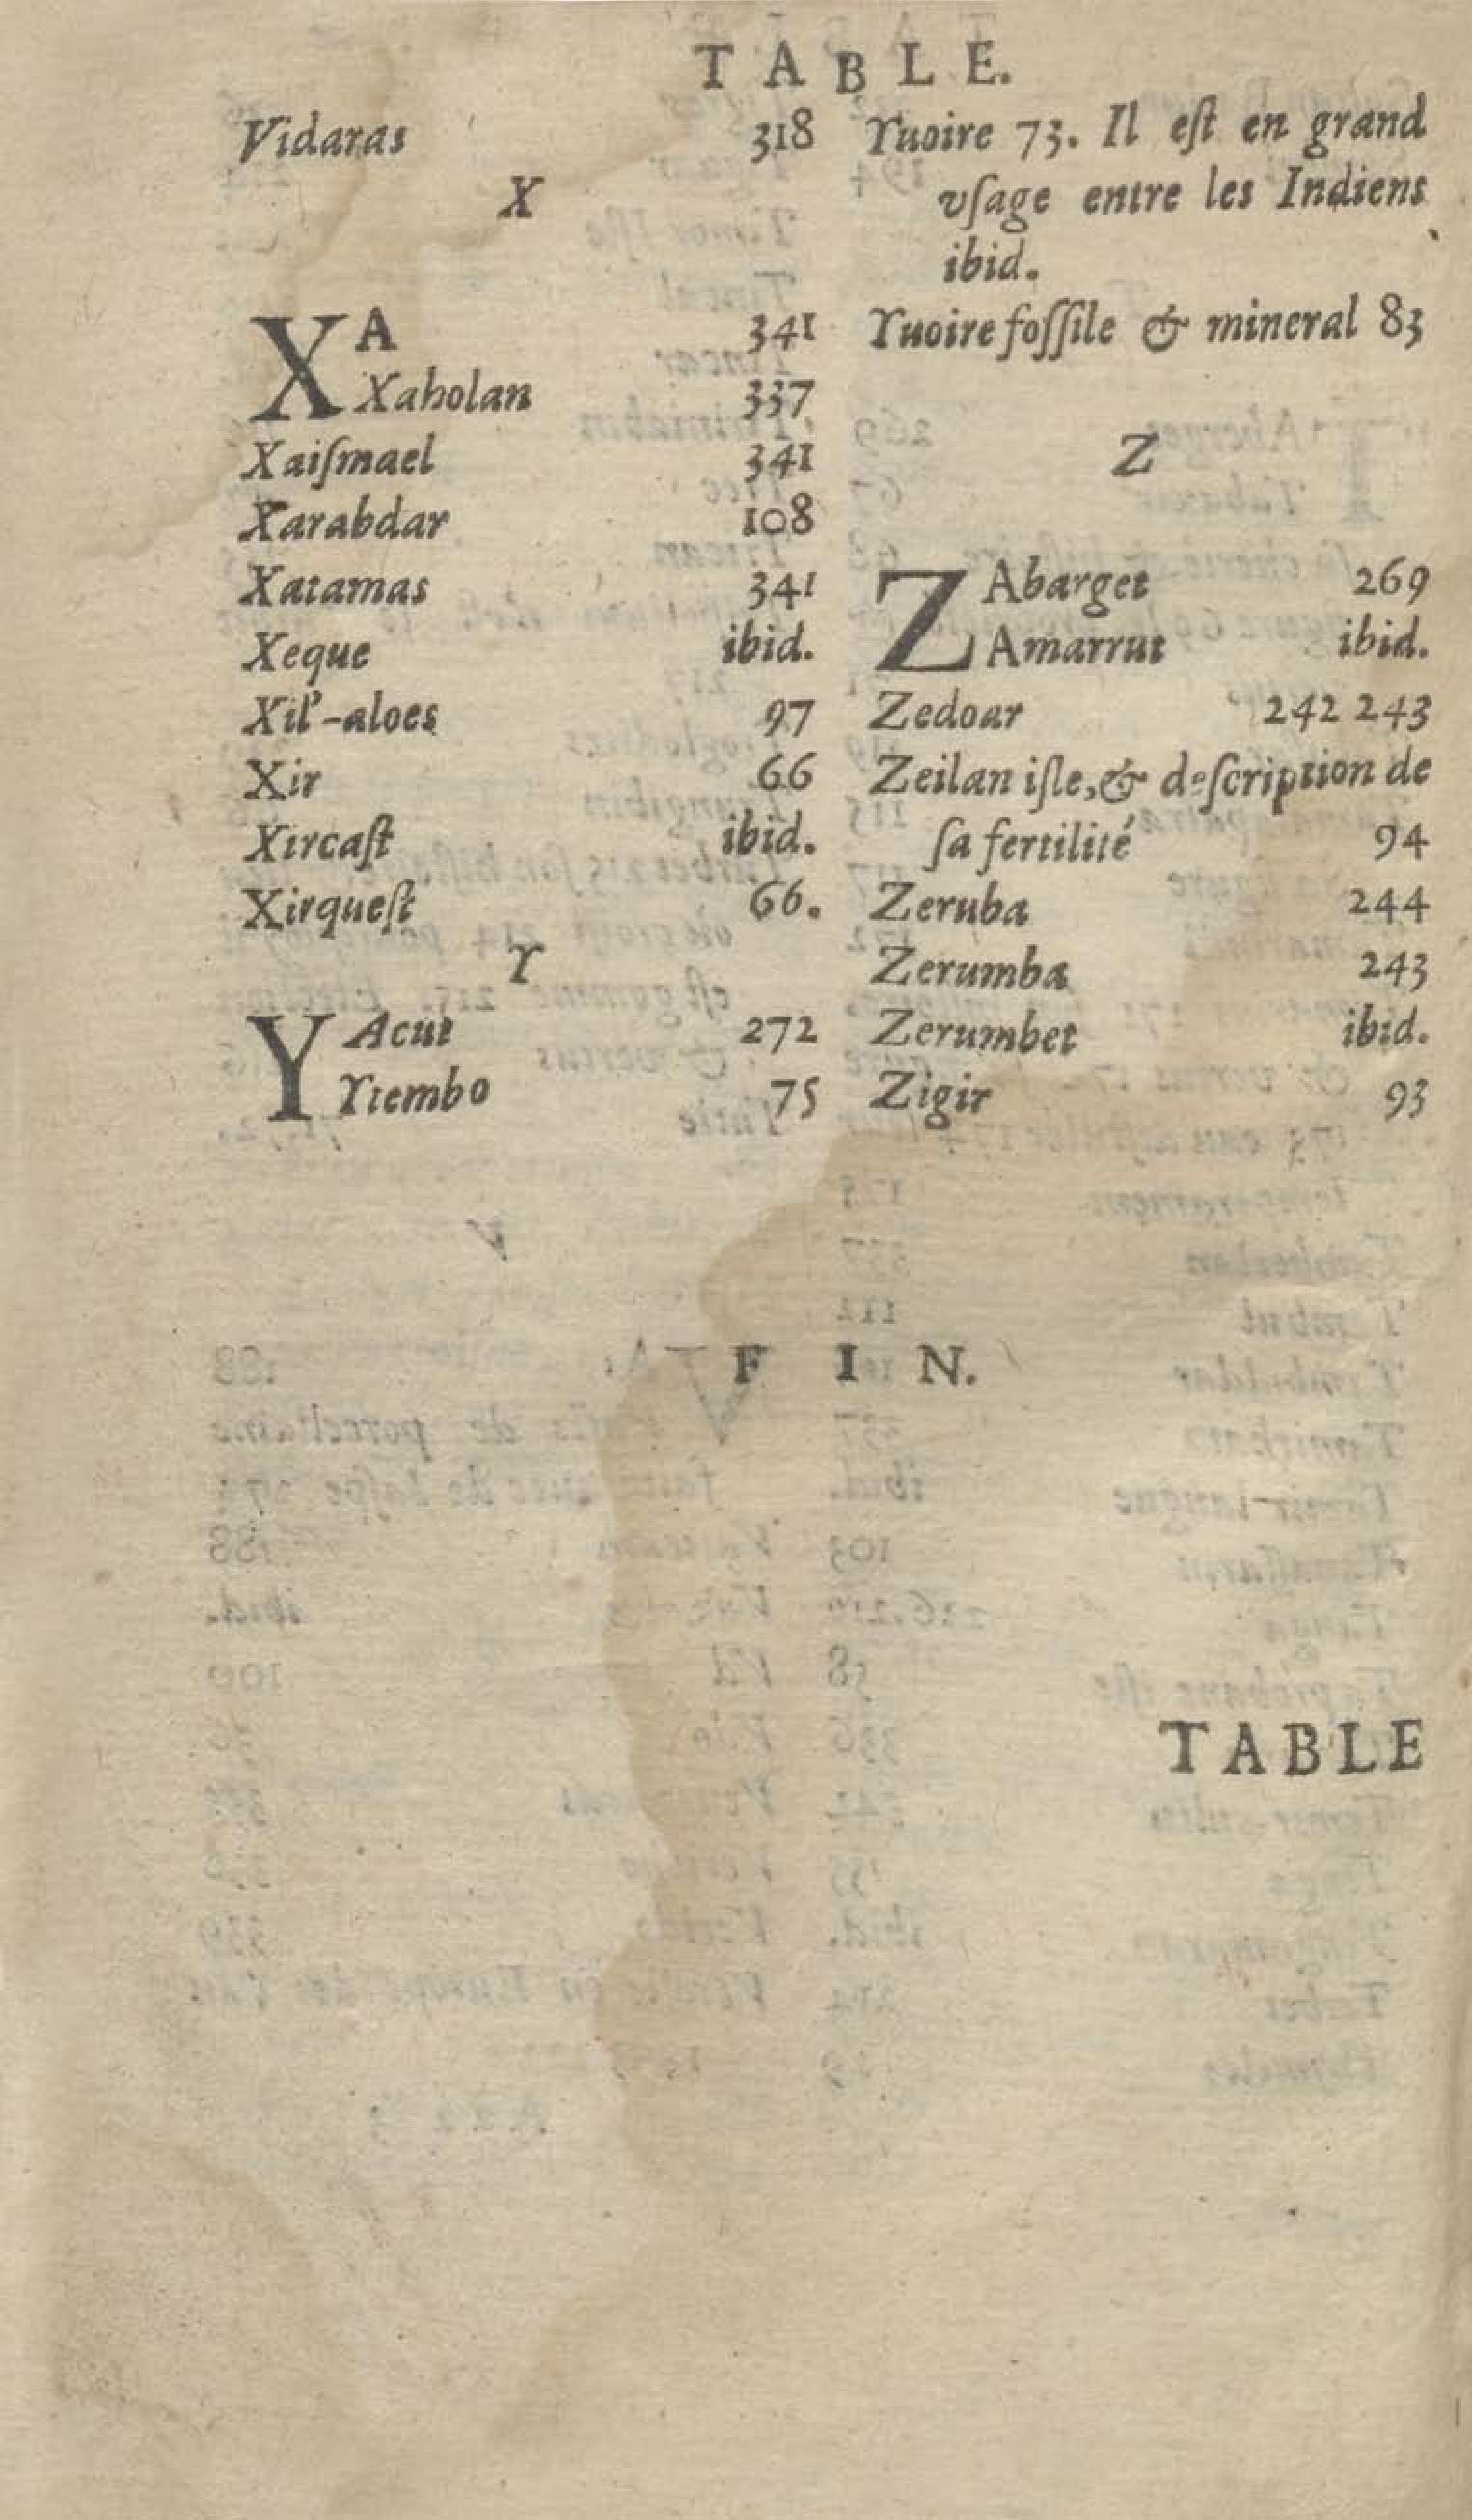 TABLE.
Vidaras 318
X
XA 341
Xaholan 337
Xaiſmael 341
Xarabdar 108
Xatamas 341
Xeque ibid.
Xil'-aloes 97
Xir 66
Xircaſt ibid.
Xirqueſt 66.
Y
YAcut 272
Ytembo 75
Yuoire 73. Il eſt en grand
vſage entre les Indiens
ibid.
Yuoire foſſile & mineral 83
Z
ZAbarget 269
ZAmarrut ibid.
Zedoar 242 243
Zeilan iſle, & deſcription de
ſa fertilité 94
Zeruba 244
Zerumba 243
Zerumbet ibid.
Zigir 93
FIN.
TABLE